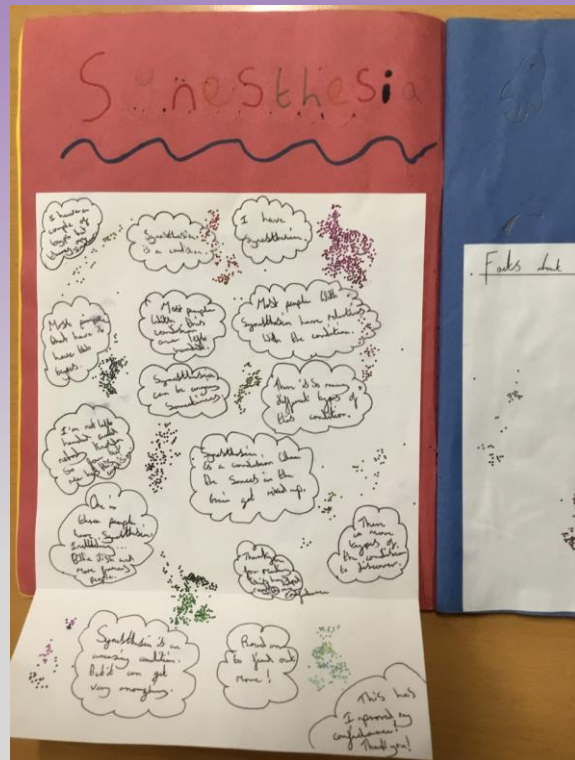 Synesthesia
I have a
couple of
Synesthesia
is a condition.
I have
Synesthesia.
Most people
that have it
have two
types.
Most people
With this
condition
are left
Most people With
Synesthesia have relatives
With the condition.
Synesthesia
can be
Sometimes.
There is so many
different types of
this condition.
I'm not left
handed and
Synesthesia.
Is a condition When
the Senses in the
brain get mixed up.
One in
three people
have Synesthesia.
Including...
More famous
people.
Thank
you
There
is more
types of
the condition
to discover.
Synesthesia is an
amazing condition.
But it can get
very annoying.
Read on
to find out
more!
This has
Improved my
confidence!
Thank you!
Facts about